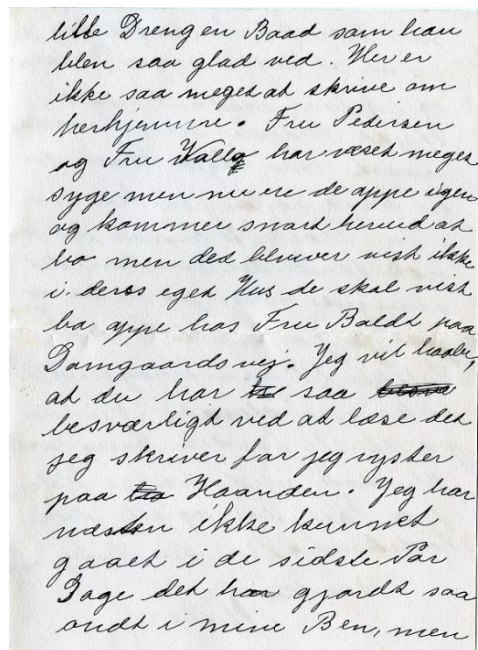 lille Dreng en Baad som han
blev saa glad ved. Her er
ikke saa meget at skrive om
herhjemme. Fru Pedersen
og Fru har været meget
syge men nu ere de oppe igen
og kommer snart herud at
bo men det bliver vist ikke
i deres eget Hus de skal vist
bo oppe hos Fru Boldt paa
Damgaardsvej. Jeg vil haabe,
at du har saa
besværligt ved at læse det
jeg skriver for jeg ryster
paa Haanden. Jeg har
næsten ikke kunnet
gaaet i de sidste Par
Dage det har gjordt saa
ondt i mine Ben, men